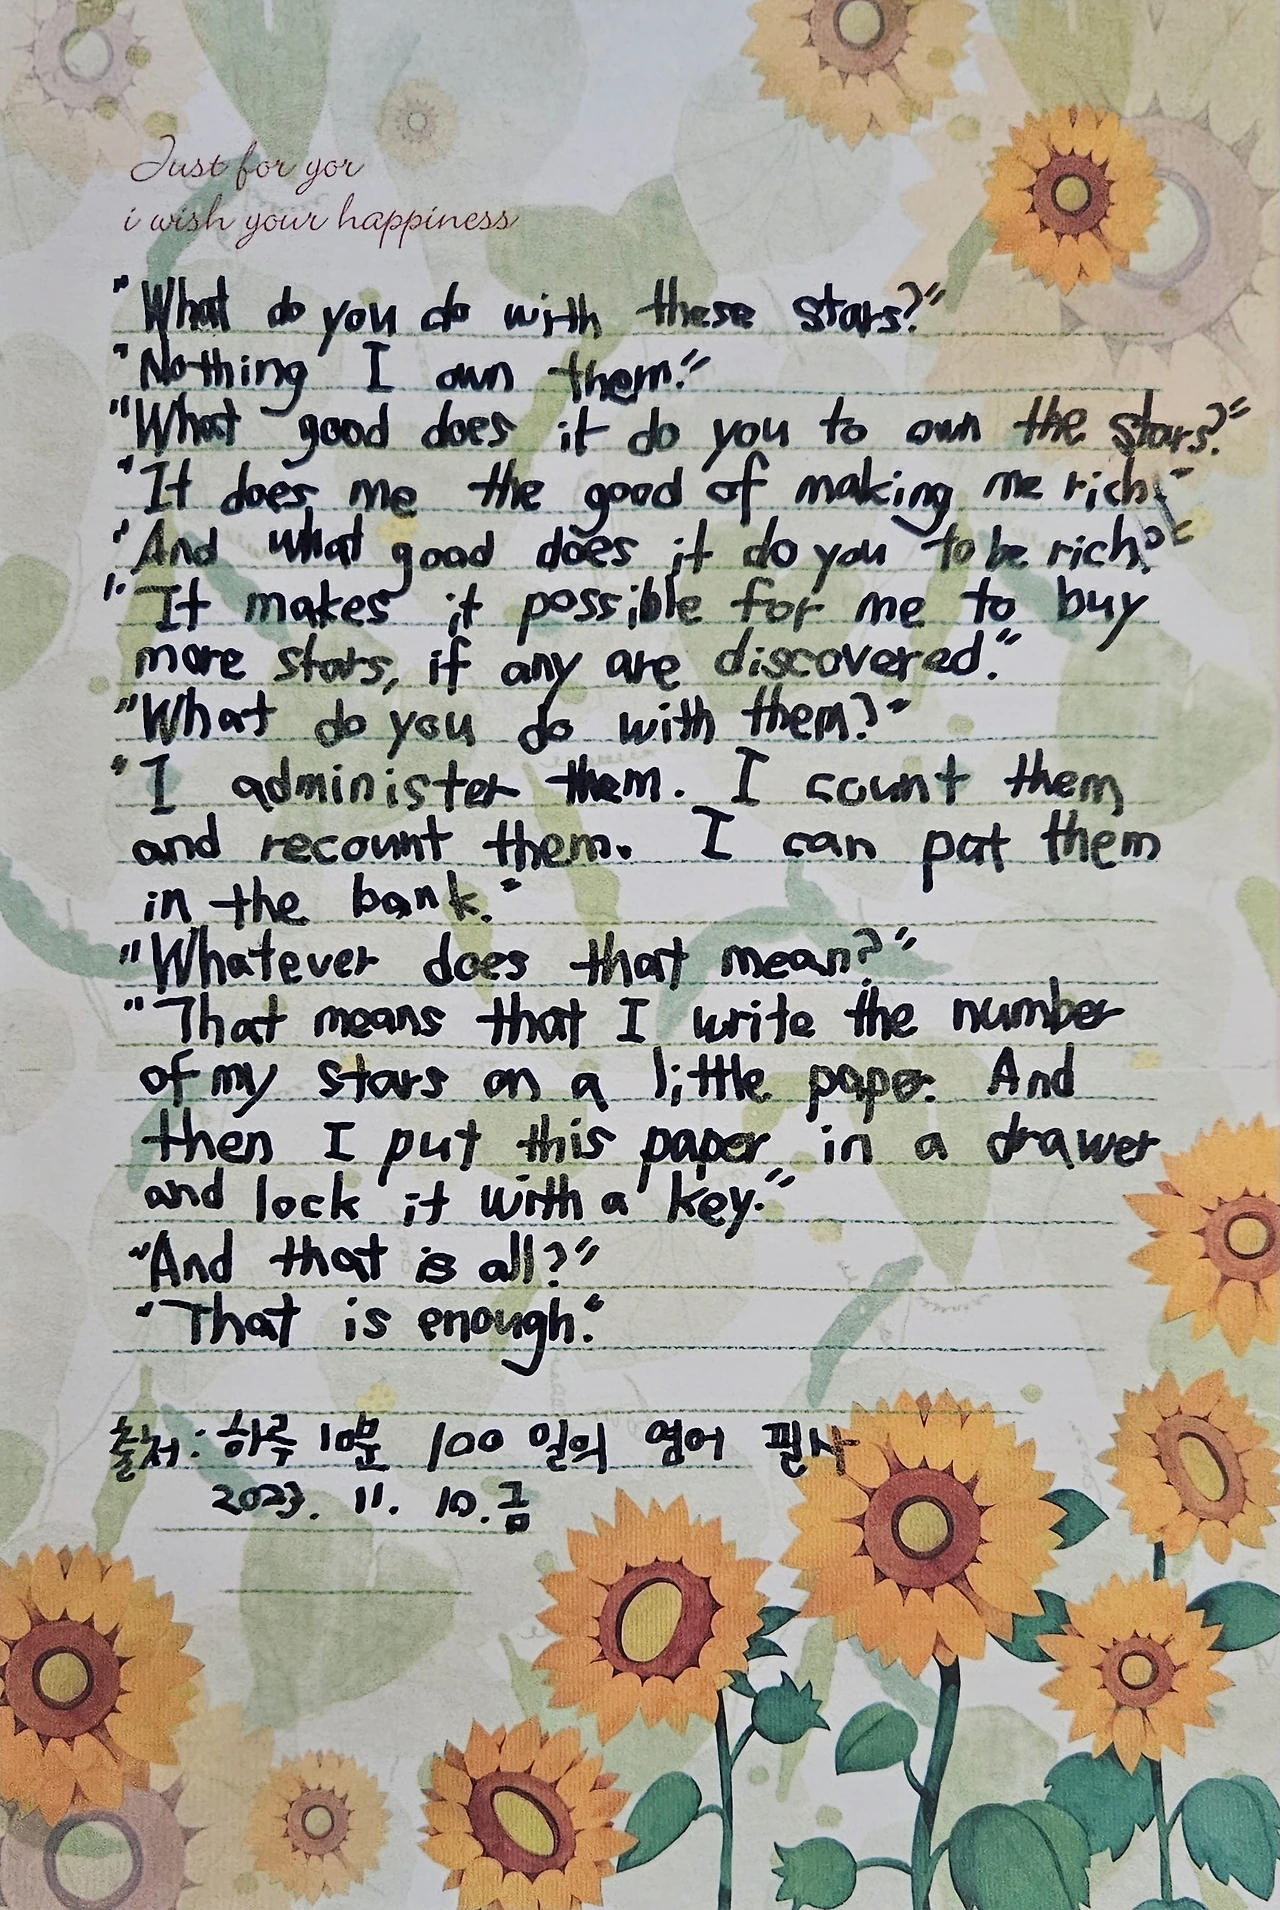 Just for yor
i wish your happiness
"What do you do with these stars?"
"Nothing I own them."
"What good does it do you to own the stars?"
"It does me the good of making me rich."
"And what good does it do you to be rich?"
"It makes it possible for me to buy
more stars, if any are discovered."
"What do you do with them?"
"I administer them. I count them
and recount them. I can put them
in the bank."
"Whatever does that mean?"
"That means that I write the number
of my stars on a little paper. And
then I put this paper in a drawer
and lock it with a key."
"And that is all?"
"That is enough."
출처: 하루 10분 100일의 영어 필사
2023. 11. 10. 금